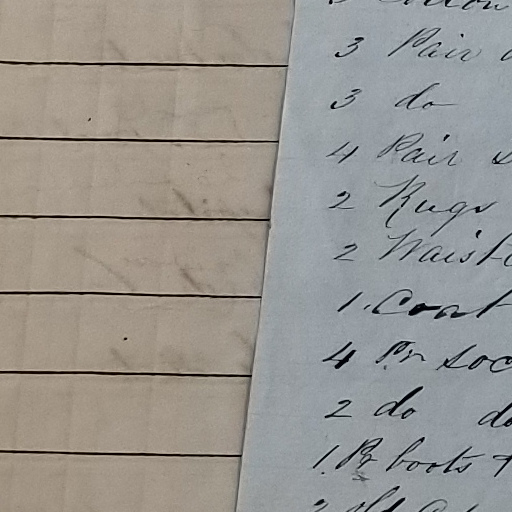 3 Pair
3 do
4 Pair
2 Rugs
2 Waist
1. Coat
4 Pr soc
2 do do
1. Pr boots +